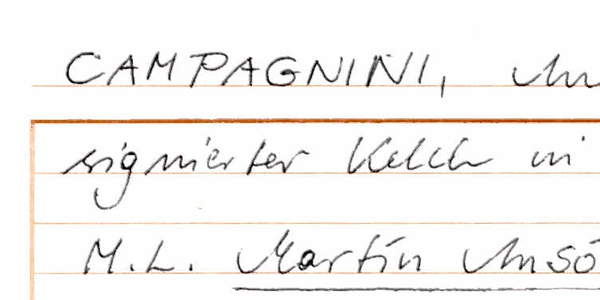 CAMPAGNINI,
signierter Kelch in
M.L. Martin